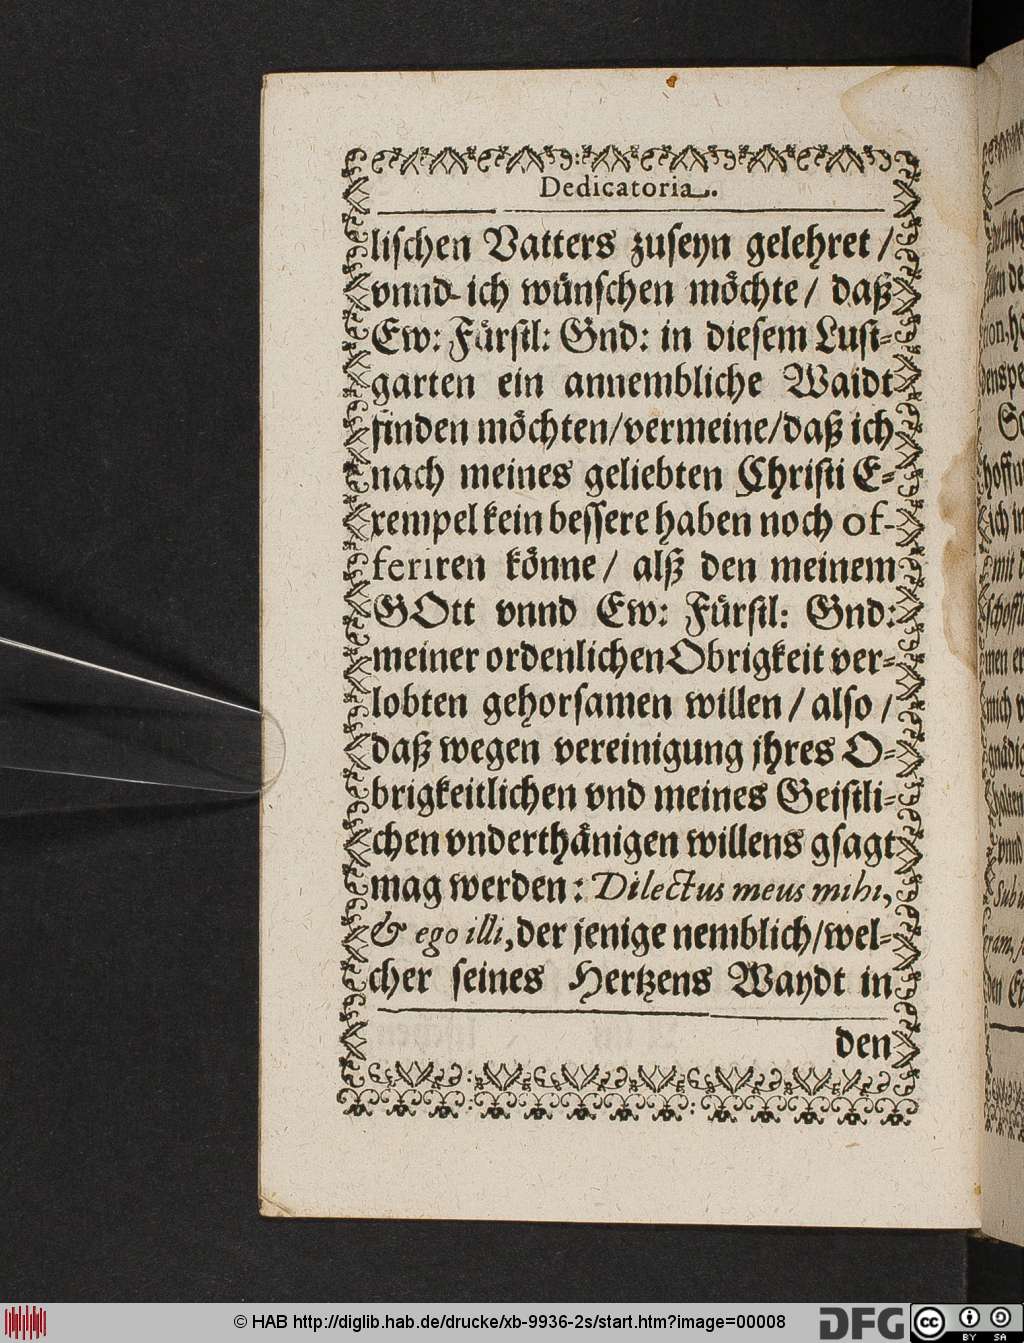 Dedicatoria.
lischen Vatters zuseyn gelehret /
vnnd ich wünschen möchte / daß
Ew: Fürstl: Gnd: in diesem Lust-
garten ein annembliche Waidt
finden möchten/vermeine/daß ich
nach meines geliebten Christi E-
xempel kein bessere haben noch of-
feriren könne / alß den meinem
GOtt vnnd Ew: Fürstl: Gnd:
meiner ordenlichen Obrigkeit ver-
lobten gehorsamen willen / also /
daß wegen vereinigung jhres O-
brigkeitlichen vnd meines Geistli-
chen vnderthänigen willens gsagt
mag werden: Dilectus meus mihi,
& ego illi, der jenige nemblich/wel-
cher seines Hertzens Waydt in
den
© HAB http://diglib.hab.de/drucke/xb-9936-2s/start.htm?image=00008
DFG
cc
BY SA